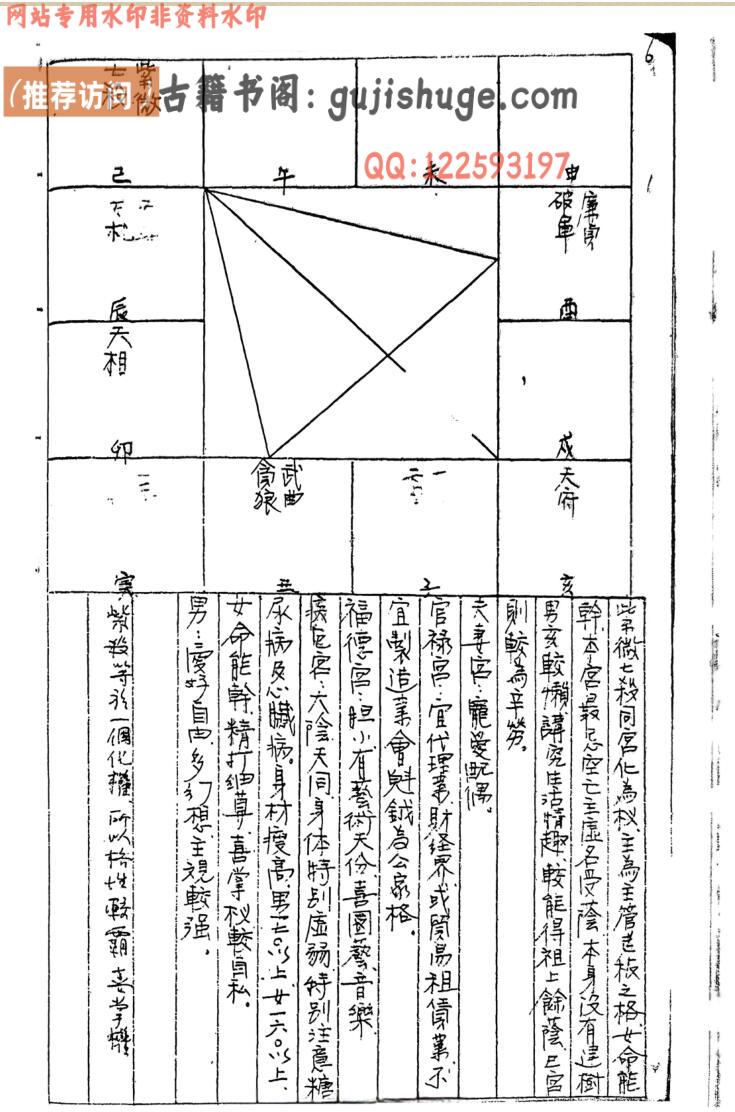 网站专用水印非资料水印
（推荐访问）
古籍书阁：gujishuge.com
QQ:122593197
紫微
七殺
巳
午
未
申
廉貞
破軍
酉
辰
天相
卯
戌
天府
武曲
貪狼
寅
丑
子
亥
紫微七殺同宮化為权主為主管老板之格女命能
幹本宮最忌空亡主虛名受蔭本身沒有建樹
男亥較懶講究生活情趣較能得祖上餘蔭巳宮
則較為辛勞。
夫妻宮：寵愛配偶。
官禄宮：宜代理業財经界或貿易祖債業不
宜製造業會魁鉞為公家格。
福德宮：胆小有藝術天份喜園藝音樂
疾厄宮：太陰天同身体特别虛弱特别注意糖
尿病及心臟病。身材瘦高男一七〇以上女一六〇以上
女命能幹精打细算喜掌权較自私。
男：愛好自由多幻想主視較强。
紫殺等於一個化權所以格性較霸喜掌權
6